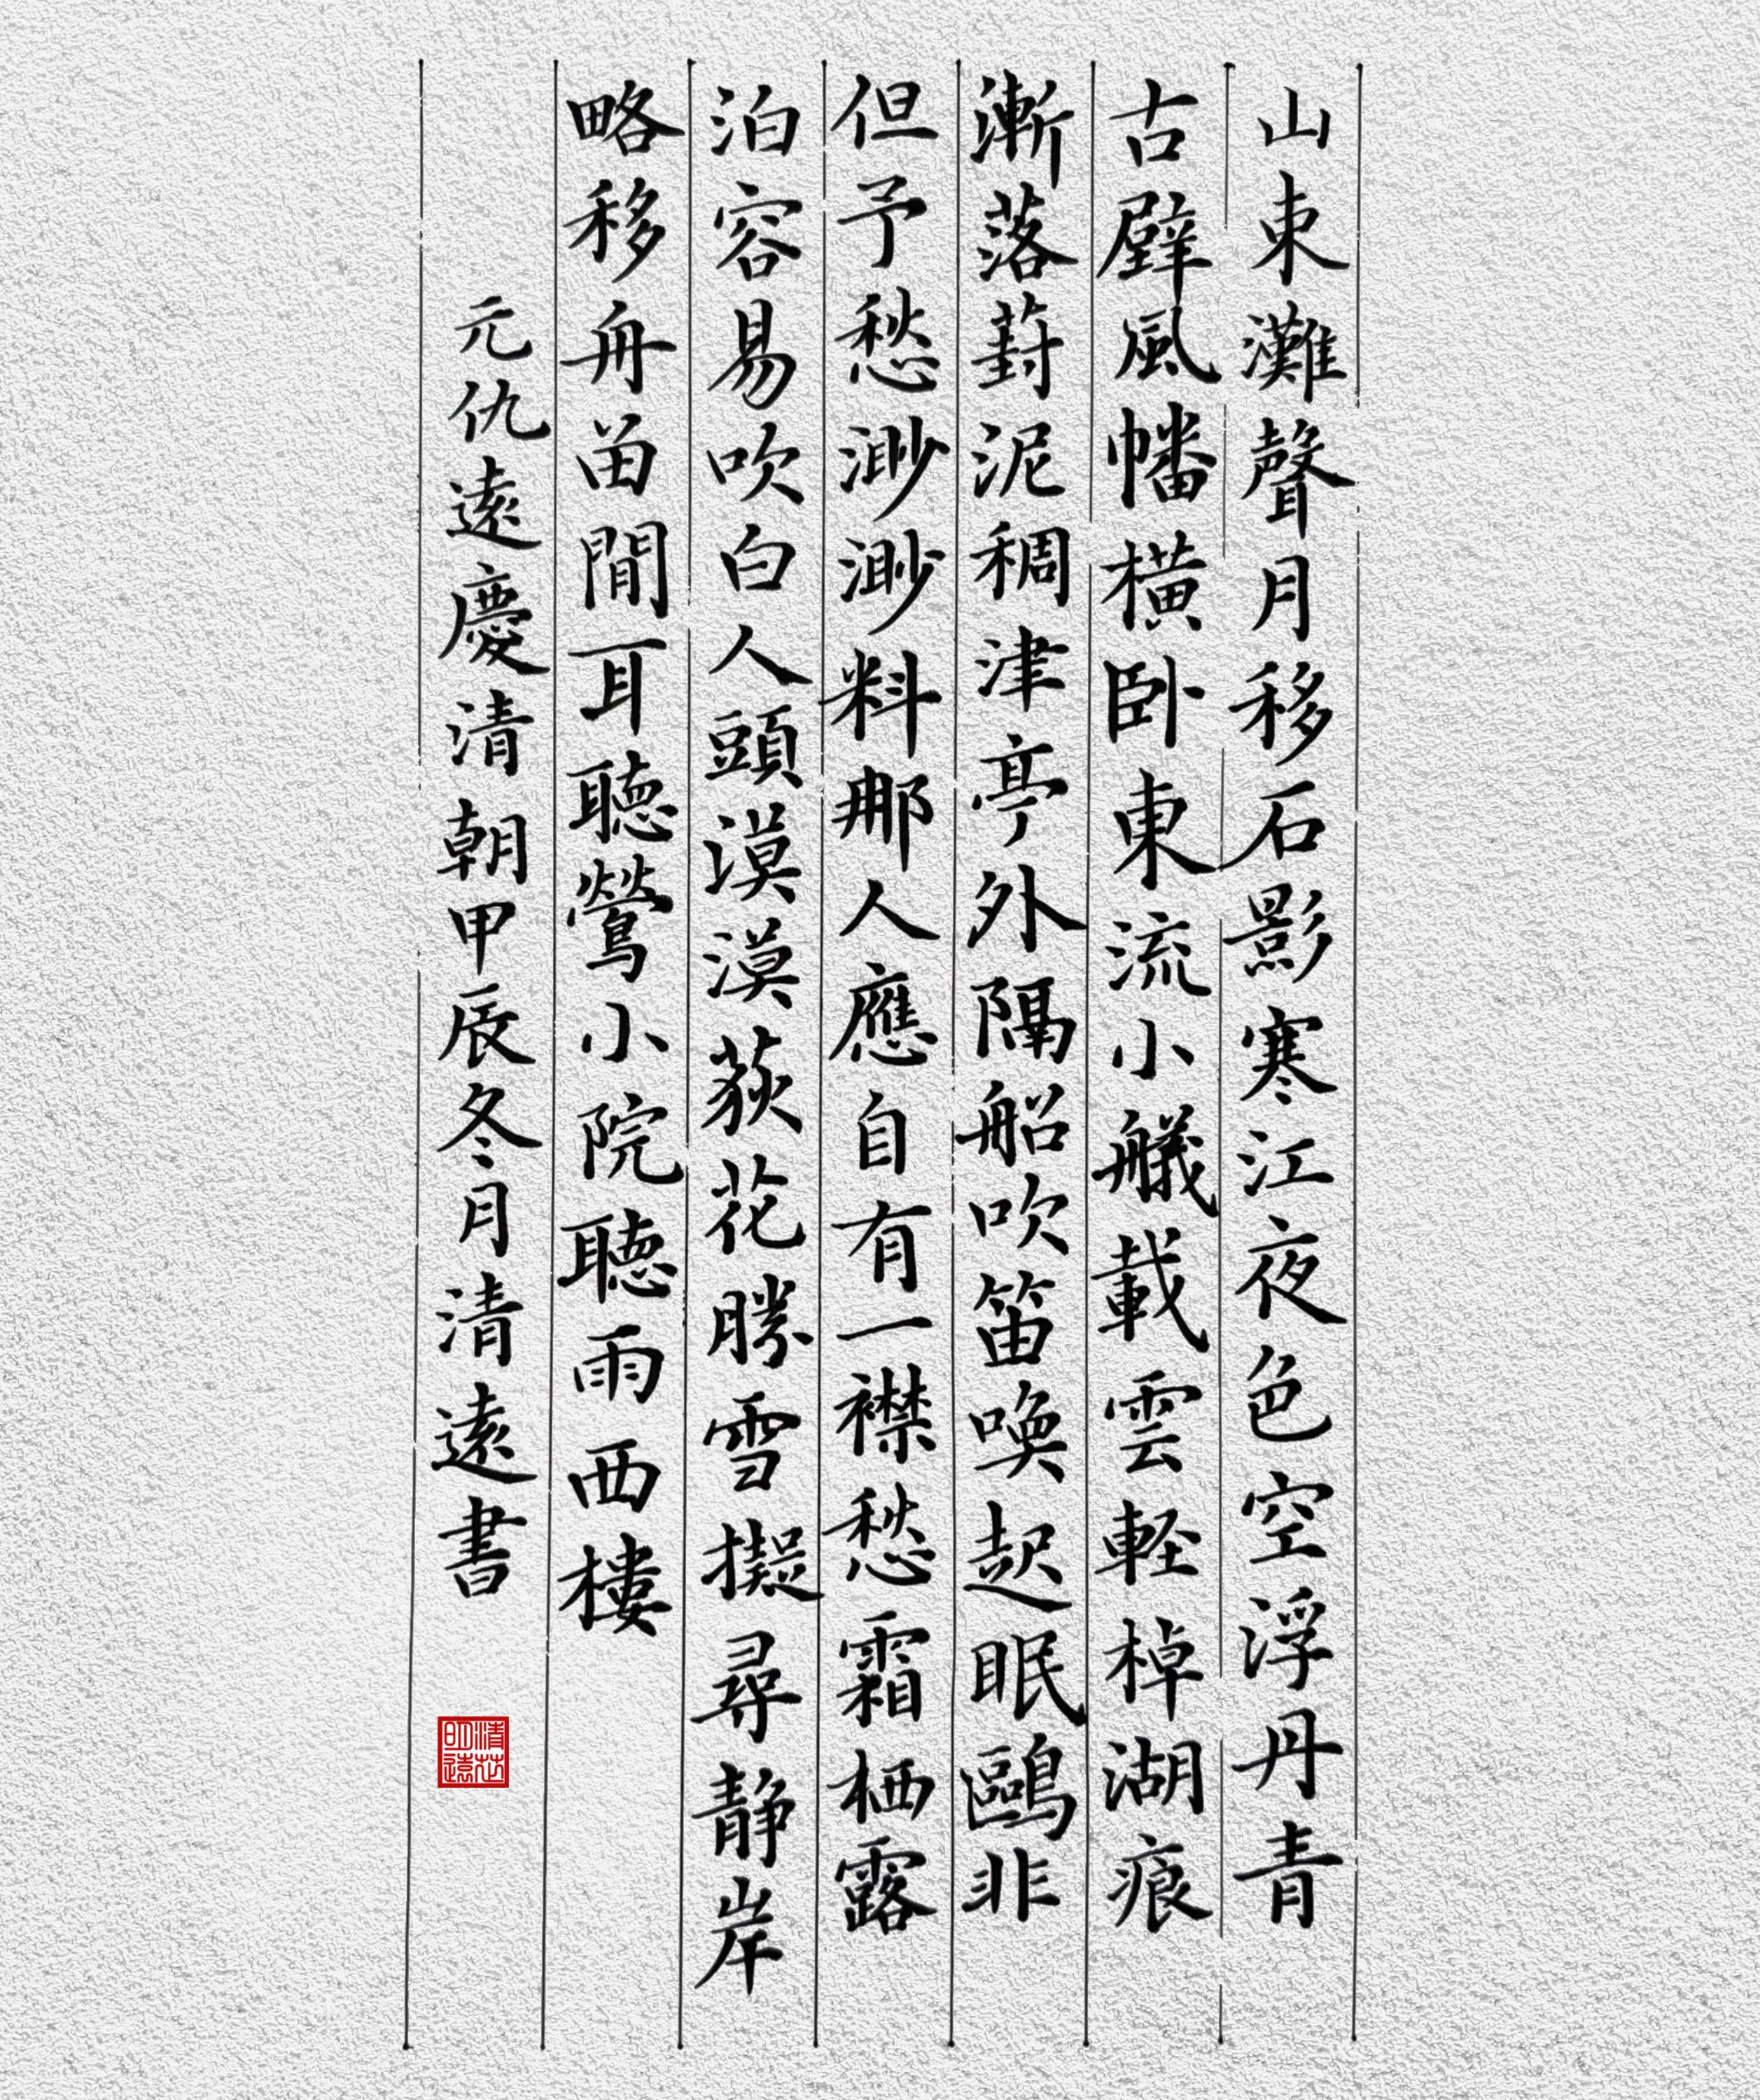 山束灘聲月移石影寒江夜色空浮丹青
古壁風幡橫卧東流小艤載雲軽棹湖痕
漸落葑泥稠津亭外隔船吹笛喚起眠鷗非
但予愁渺渺料那人應自有一襟愁霜栖露
泊容易吹白人頭漠漠荻花勝雪擬尋静岸
略移舟留閒耳聴鶯小院聴雨西樓
元仇遠慶清朝甲辰冬月清遠書
清芯明遠